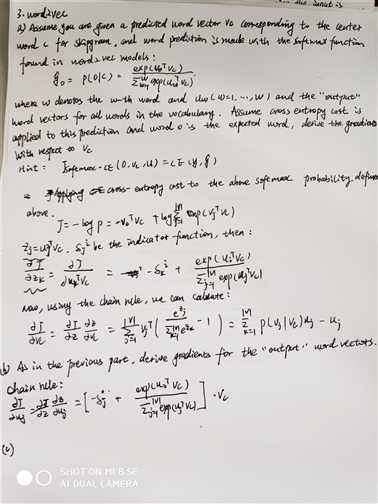 3. word2vec
a) Assume you are given a predicted word vector vc corresponding to the center
word c for skipgram, and word prediction is made with the softmax function
found in word2vec models:
ŷo = p(o|c) = exp(uoᵀvc) / Σ_{w=1}^{W} exp(uwᵀvc)
where w denotes the w-th word and uw(w=1,…,W) and the "output"
word vectors for all words in the vocabulary. Assume cross entropy cost is
applied to this prediction and word o is the expected word, derive the gradients
with respect to vc
Hint: Jsoftmax-CE (o, vc, u) = CE (y, ŷ)
applying cross-entropy cost to the above softmax probability defined
above.
J = -log p = -uoᵀvc + log Σ_{j=1}^{|V|} exp(vjᵀvc)
zj = ujᵀvc. δ be the indicator function, then:
∂J/∂zk = ∂J/∂ukᵀvc = -δ + exp(ukᵀvc) / Σ_{j=1}^{|V|} exp(ujᵀvc)
now, using the chain rule, we can calculate:
∂J/∂vc = ∂J/∂z ∂z/∂vc = Σ_{j=1}^{|V|} vjᵀ( / Σ - 1) = Σ P(vj|vc)uj - uj
(b) As in the previous part, derive gradients for the "output" word vectors.
chain rule:
∂J/∂uj = ∂J/∂z ∂z/∂uj = [-δ + exp(uᵀvc) / Σ_{j=1}^{|V|} exp(vjᵀvc)] · vc
(c)
SHOT ON MI 8 SE
AI DUAL CAMERA